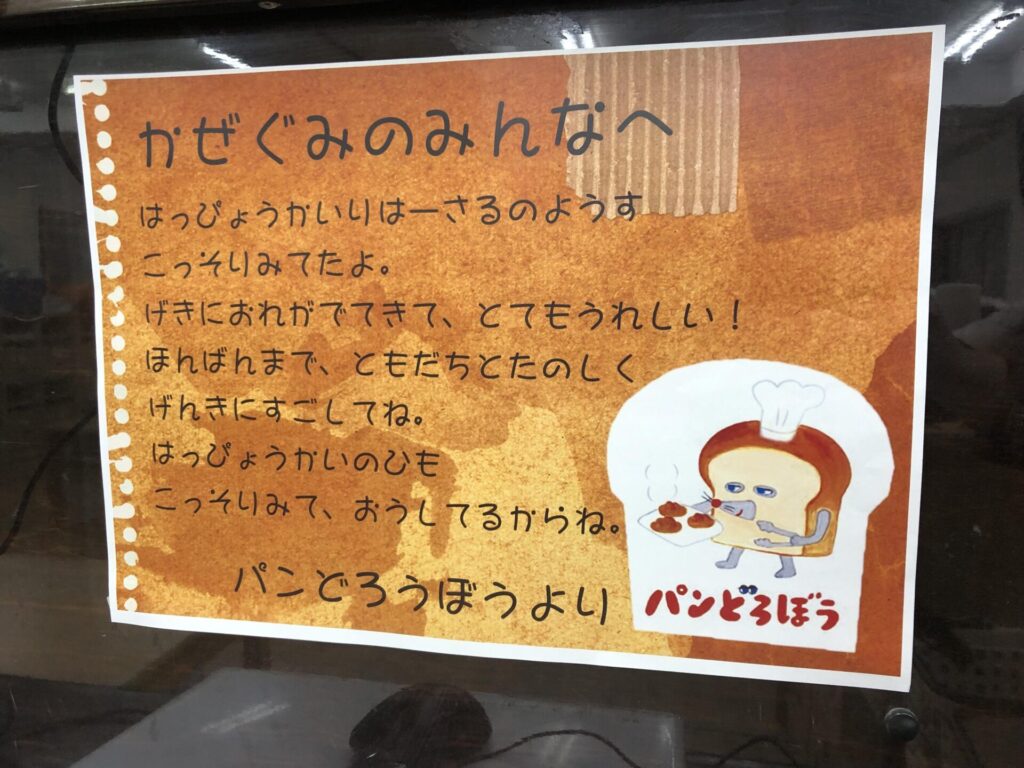 かぜぐみのみんなへ
はっぴょうかいりはーさるのようす
こっそりみてたよ。
げきにおれがでてきて、とてもうれしい!
ほんばんまで、ともだちとたのしく
げんきにすごしてね。
はっぴょうかいのひも
こっそりみて、おうしてるからね。
パンどろうぼうより
パンどろぼう